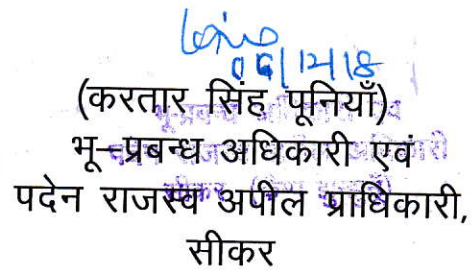 06/12/18
(करतार सिंह पूनियाँ)
भू–प्रबन्ध अधिकारी एवं
पदेन राजस्व अपील प्राधिकारी,
सीकर